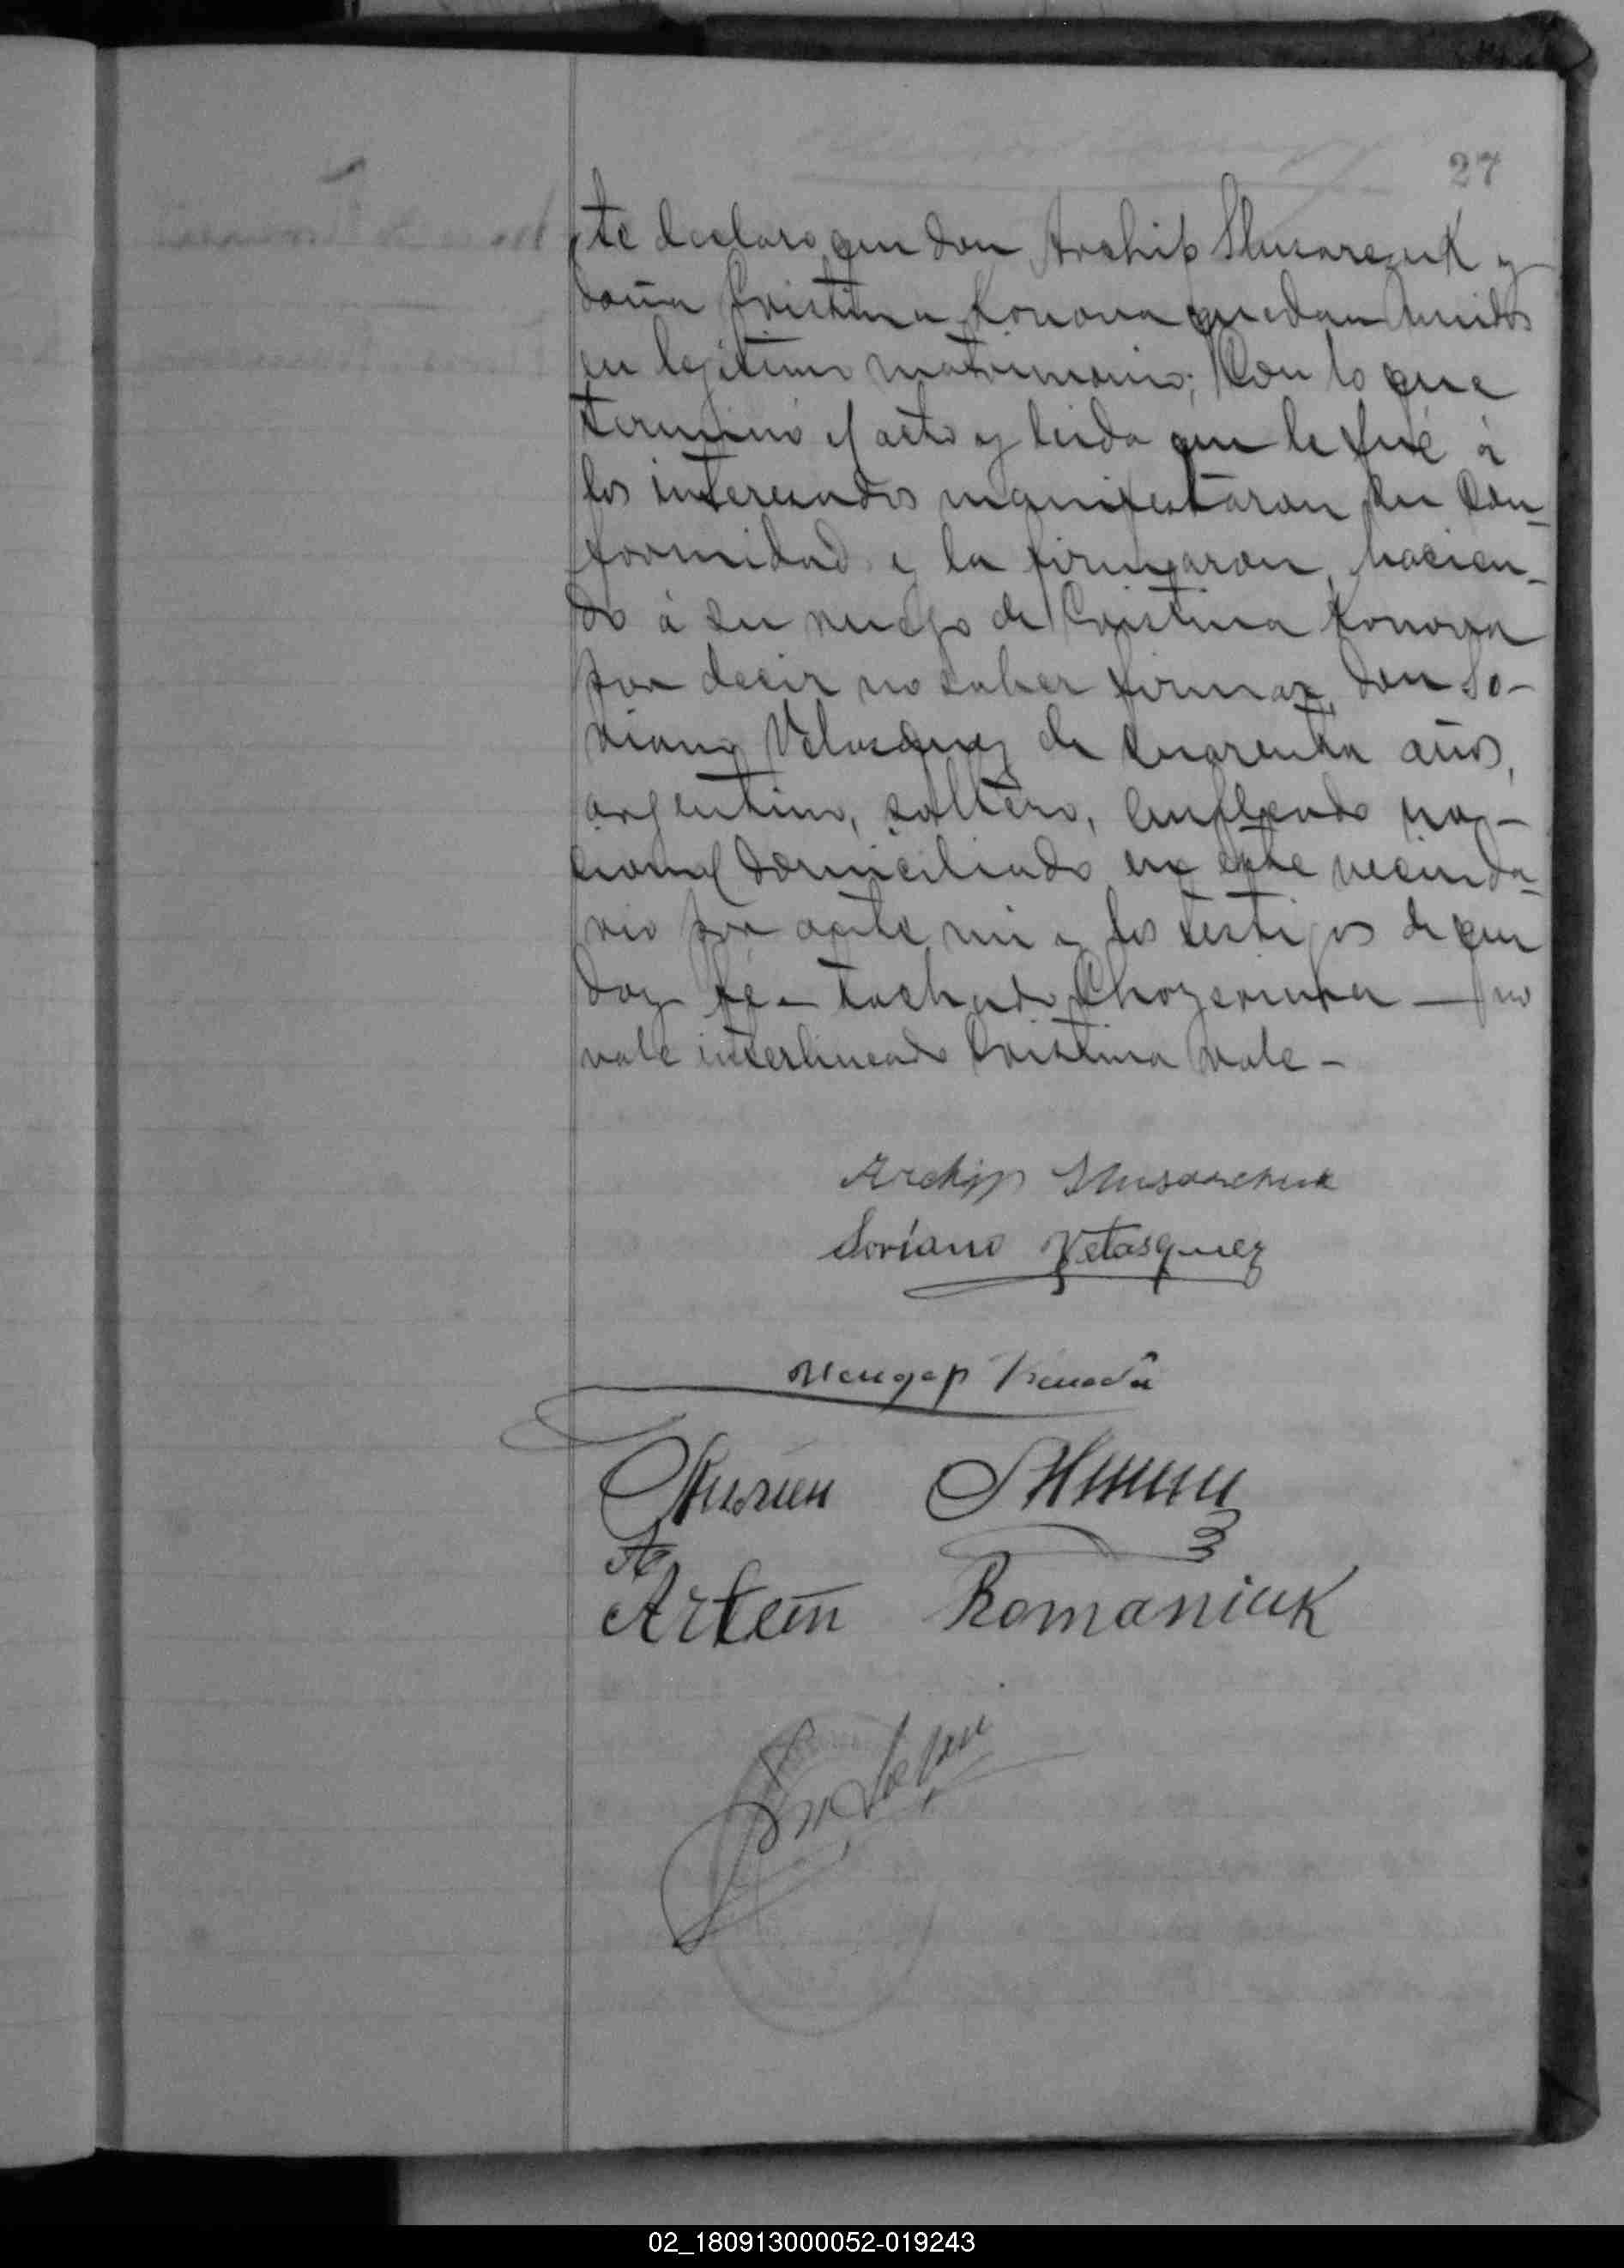 27
te declaro que don Archip Slusarczuk y
doña Cristina Konova quedan unidos
en legitimo matrimonio; Con lo que
terminó el acto y leida que le fué á
los interesados manifestaron su con-
formidad y la firmaron, hacien-
do á su ruego de Cristina Konova
por decir no saber firmar, don So-
riano Velasquez de cuarenta años,
argentino, soltero, empleado na-
cional domiciliado en este vecinda-
rio por ante mi y los testigos de que
doy fé - tachado - no
vale interlineado Cristina vale -
Archip Slusarchuk
Soriano Velasquez
Artem Romaniuk
02_180913000052-019243